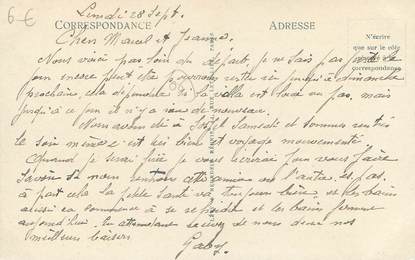 6€
Lundi 28 Sept.
CORRESPONDANCE
ADRESSE
N'écrire
que sur le côté
correspondance
Cher Marcel et Jeanne.
Nous voici pas loin du départ, je ne sais pas le
jour encore peut être pourrons rester ici jusqu'à dimanche
prochain, cela dépendra si la villa est louée ou pas, mais
jusqu'à ce jour il n'y a rien de nouveau.
Nous avons été à Samedi et sommes rentrés
le soir même c'est très bien et voyage mouvementé
Quand je serai fixée je vous écrirai pour vous faire
savoir si nous rentrons ou l'autre, et pas.
à part cela la petite santé va toujours bien et les bains
aussi ça commence à se refroidir et les bains ferment
aujourd'hui. En attendant recevez de nous deux nos
meilleurs baisers.
Gaby.